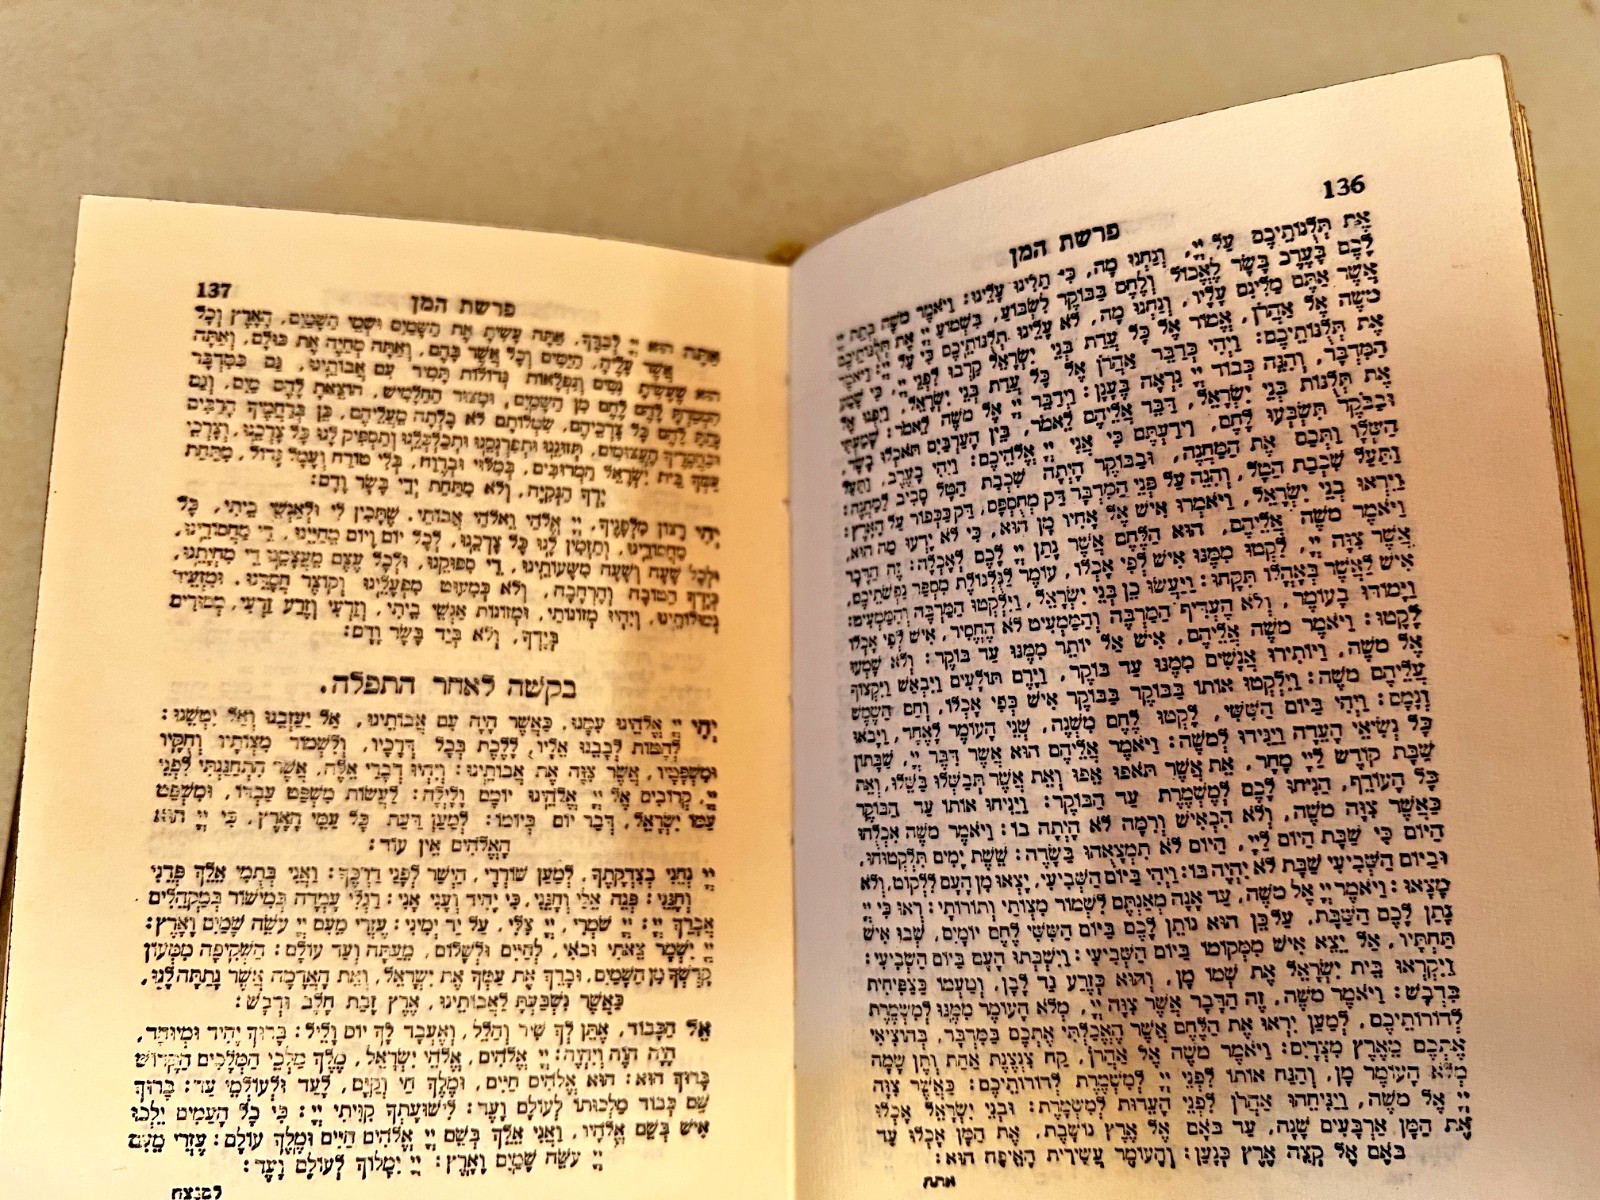 136
פרשת המן
אֶת תְּלֻנּוֹתֵיכֶם עַל יְיָ, וְנַחְנוּ מָה, כִּי תַלִּינוּ עָלֵינוּ: וַיֹּאמֶר משֶׁה בְּתֵת יְיָ
לָכֶם בָּעֶרֶב בָּשָׂר לֶאֱכוֹל וְלֶחֶם בַּבּוֹקֶר לִשְׂבּוֹעַ, בִּשְׁמוֹעַ יְיָ אֶת תְּלֻנּוֹתֵיכֶם
אֲשֶׁר אַתֶּם מַלִּינִם עָלָיו, וְנַחְנוּ מָה, לֹא עָלֵינוּ תְלֻנּוֹתֵיכֶם כִּי עַל יְיָ: וַיֹּאמֶר
משֶׁה אֶל אַהֲרֹן, אֱמוֹר אֶל כָּל עֲדַת בְּנֵי יִשְׂרָאֵל קִרְבוּ לִפְנֵי יְיָ, כִּי שָׁמַע
אֶת תְּלֻנּוֹתֵיכֶם: וַיְהִי כְּדַבֵּר אַהֲרֹן אֶל כָּל עֲדַת בְּנֵי יִשְׂרָאֵל, וַיִּפְנוּ אֶל
הַמִּדְבָּר, וְהִנֵּה כְּבוֹד יְיָ נִרְאָה בֶּעָנָן: וַיְדַבֵּר יְיָ אֶל משֶׁה לֵּאמֹר: שָׁמַעְתִּי
אֶת תְּלֻנּוֹת בְּנֵי יִשְׂרָאֵל, דַּבֵּר אֲלֵיהֶם לֵאמֹר, בֵּין הָעַרְבַּיִם תֹּאכְלוּ בָשָׂר
וּבַבֹּקֶר תִּשְׂבְּעוּ לָחֶם, וִידַעְתֶּם כִּי אֲנִי יְיָ אֱלֹהֵיכֶם: וַיְהִי בָעֶרֶב, וַתַּעַל
הַשְּׂלָו וַתְּכַס אֶת הַמַּחֲנֶה, וּבַבּוֹקֶר הָיְתָה שִׁכְבַת הַטַּל סָבִיב לַמַּחֲנֶה:
וַתַּעַל שִׁכְבַת הַטָּל, וְהִנֵּה עַל פְּנֵי הַמִּדְבָּר דַּק מְחֻסְפָּס, דַּק כַּכְּפוֹר עַל הָאָרֶץ:
וַיִּרְאוּ בְנֵי יִשְׂרָאֵל, וַיֹּאמְרוּ אִישׁ אֶל אָחִיו מָן הוּא, כִּי לֹא יָדְעוּ מַה הוּא,
וַיֹּאמֶר משֶׁה אֲלֵיהֶם, הוּא הַלֶּחֶם אֲשֶׁר נָתַן יְיָ לָכֶם לְאָכְלָה: זֶה הַדָּבָר
אֲשֶׁר צִוָּה יְיָ, לִקְטוּ מִמֶּנּוּ אִישׁ לְפִי אָכְלוֹ, עוֹמֶר לַגֻּלְגּוֹלֶת מִסְפַּר נַפְשֹׁתֵיכֶם,
אִישׁ לַאֲשֶׁר בְּאָהֳלוֹ תִּקָּחוּ: וַיַּעֲשׂוּ כֵן בְּנֵי יִשְׂרָאֵל, וַיִּלְקְטוּ הַמַּרְבֶּה וְהַמַּמְעִיט:
וַיָּמוֹדּוּ בָעוֹמֶר, וְלֹא הֶעְדִּיף הַמַּרְבֶּה וְהַמַּמְעִיט לֹא הֶחְסִיר, אִישׁ לְפִי אָכְלוֹ
לָקָטוּ: וַיֹּאמֶר משֶׁה אֲלֵיהֶם, אִישׁ אַל יוֹתֵר מִמֶּנּוּ עַד בּוֹקֶר: וְלֹא שָׁמְעוּ
אֶל משֶׁה, וַיּוֹתִירוּ אֲנָשִׁים מִמֶּנּוּ עַד בּוֹקֶר, וַיָּרֻם תּוֹלָעִים וַיִּבְאַשׁ וַיִּקְצוֹף
עֲלֵיהֶם משֶׁה: וַיִּלְקְטוּ אוֹתוֹ בַּבּוֹקֶר בַּבּוֹקֶר אִישׁ כְּפִי אָכְלוֹ, וְחַם הַשֶּׁמֶשׁ
וְנָמָס: וַיְהִי בַּיּוֹם הַשִּׁשִּׁי, לָקְטוּ לֶחֶם מִשְׁנֶה, שְׁנֵי הָעוֹמֶר לָאֶחָד, וַיָּבֹאוּ
כָּל נְשִׂיאֵי הָעֵדָה וַיַּגִּידוּ לְמשֶׁה: וַיֹּאמֶר אֲלֵיהֶם הוּא אֲשֶׁר דִּבֶּר יְיָ, שַׁבָּתוֹן
שַׁבַּת קוֹדֶשׁ לַיְיָ מָחָר, אֵת אֲשֶׁר תֹּאפוּ אֵפוּ וְאֵת אֲשֶׁר תְּבַשְּׁלוּ בַּשֵּׁלוּ, וְאֵת
כָּל הָעוֹדֵף, הַנִּיחוּ לָכֶם לְמִשְׁמֶרֶת עַד הַבּוֹקֶר: וַיַּנִּיחוּ אוֹתוֹ עַד הַבּוֹקֶר
כַּאֲשֶׁר צִוָּה משֶׁה, וְלֹא הִבְאִישׁ וְרִמָּה לֹא הָיְתָה בּוֹ: וַיֹּאמֶר משֶׁה אִכְלֻהוּ
הַיּוֹם כִּי שַׁבָּת הַיּוֹם לַיְיָ, הַיּוֹם לֹא תִמְצָאֻהוּ בַּשָּׂדֶה: שֵׁשֶׁת יָמִים תִּלְקְטֻהוּ,
וּבַיּוֹם הַשְּׁבִיעִי שַׁבָּת לֹא יִהְיֶה בּוֹ: וַיְהִי בַּיּוֹם הַשְּׁבִיעִי, יָצְאוּ מִן הָעָם לִלְקוֹט, וְלֹא
מָצָאוּ: וַיֹּאמֶר יְיָ אֶל משֶׁה, עַד אָנָה מֵאַנְתֶּם לִשְׁמוֹר מִצְוֹתַי וְתוֹרוֹתָי: רְאוּ כִּי יְיָ
נָתַן לָכֶם הַשַּׁבָּת, עַל כֵּן הוּא נוֹתֵן לָכֶם בַּיּוֹם הַשִּׁשִּׁי לֶחֶם יוֹמָיִם, שְׁבוּ אִישׁ
תַּחְתָּיו, אַל יֵצֵא אִישׁ מִמְּקוֹמוֹ בַּיּוֹם הַשְּׁבִיעִי: וַיִּשְׁבְּתוּ הָעָם בַּיּוֹם הַשְּׁבִיעִי:
וַיִּקְרְאוּ בֵית יִשְׂרָאֵל אֶת שְׁמוֹ מָן, וְהוּא כְּזֶרַע גַּד לָבָן, וְטַעְמוֹ כְּצַפִּיחִית
בִּדְבָשׁ: וַיֹּאמֶר משֶׁה, זֶה הַדָּבָר אֲשֶׁר צִוָּה יְיָ, מְלֹא הָעוֹמֶר מִמֶּנּוּ לְמִשְׁמֶרֶת
לְדוֹרוֹתֵיכֶם, לְמַעַן יִרְאוּ אֶת הַלֶּחֶם אֲשֶׁר הֶאֱכַלְתִּי אֶתְכֶם בַּמִּדְבָּר, בְּהוֹצִיאִי
אֶתְכֶם מֵאֶרֶץ מִצְרָיִם: וַיֹּאמֶר משֶׁה אֶל אַהֲרֹן, קַח צִנְצֶנֶת אַחַת וְתֶן שָׁמָּה
מְלֹא הָעוֹמֶר מָן, וְהַנַּח אוֹתוֹ לִפְנֵי יְיָ לְמִשְׁמֶרֶת לְדוֹרוֹתֵיכֶם: כַּאֲשֶׁר צִוָּה
יְיָ אֶל משֶׁה, וַיַּנִּיחֵהוּ אַהֲרֹן לִפְנֵי הָעֵדוּת לְמִשְׁמָרֶת: וּבְנֵי יִשְׂרָאֵל אָכְלוּ
אֶת הַמָּן אַרְבָּעִים שָׁנָה, עַד בֹּאָם אֶל אֶרֶץ נוֹשָׁבֶת, אֶת הַמָּן אָכְלוּ עַד
בֹּאָם אֶל קְצֵה אֶרֶץ כְּנָעַן: וְהָעוֹמֶר עֲשִׂירִית הָאֵיפָה הוּא:
אתה
137
פרשת המן
אַתָּה הוּא יְיָ לְבַדֶּךָ, אַתָּה עָשִׂיתָ אֶת הַשָּׁמַיִם וּשְׁמֵי הַשָּׁמַיִם, הָאָרֶץ וְכָל
אֲשֶׁר עָלֶיהָ, הַיַּמִּים וְכָל אֲשֶׁר בָּהֶם, וְאַתָּה מְחַיֶּה אֶת כּוּלָּם, וְאַתָּה
הוּא שֶׁעָשִׂיתָ נִסִּים וְנִפְלָאוֹת גְּדוֹלוֹת תָּמִיד עִם אֲבוֹתֵינוּ, גַּם בַּמִּדְבָּר
הִמְטַרְתָּ לָהֶם לֶחֶם מִן הַשָּׁמַיִם, וּמִצּוּר הַחַלָּמִישׁ, הוֹצֵאתָ לָהֶם מַיִם, וְגַם
נָתַתָּ לָהֶם כָּל צָרְכֵיהֶם, שִׂמְלוֹתָם לֹא בָלְתָה מֵעֲלֵיהֶם, כֵּן בְּרַחֲמֶיךָ הָרַבִּים
וּבַחֲסָדֶיךָ הָעֲצוּמִים, תְּזוּנֵנוּ וּתְפַרְנְסֵנוּ וּתְכַלְכְּלֵנוּ וְתַסְפִּיק לָנוּ כָּל צָרְכֵנוּ, וְצָרְכֵי
עַמְּךָ בֵּית יִשְׂרָאֵל הַמְרֻבִּים, בְּמִלּוּי וּבְרֶוַח, בְּלִי טוֹרַח וְעָמָל גָּדוֹל, מִתַּחַת
יָדְךָ הַנְּקִיָּה, וְלֹא מִתַּחַת יְדֵי בָּשָׂר וָדָם:
יְהִי רָצוֹן מִלְּפָנֶיךָ, יְיָ אֱלֹהַי וֵאלֹהֵי אֲבוֹתַי, שֶׁתָּכִין לִי וּלְאַנְשֵׁי בֵיתִי, כָּל
מַחְסוֹרֵינוּ, וְתַזְמִין לָנוּ כָּל צָרְכֵנוּ, לְכָל יוֹם וָיוֹם מֵחַיֵּינוּ, דֵּי מַחְסוֹרֵינוּ,
וּלְכָל שָׁעָה וְשָׁעָה מִשְּׁעוֹתֵינוּ, דֵּי סִפּוּקֵנוּ, וּלְכָל עֶצֶם מֵעֲצָמֵנוּ דֵּי מִחְיָתֵנוּ,
מִיָּדְךָ הַטּוֹבָה וְהָרְחָבָה, וְלֹא כְּמִעוּט מִפְעָלֵינוּ וְקוֹצֶר חֲסָדֵינוּ, וּמִזְעֵיר
גְּמוּלוֹתֵינוּ, וְיִהְיוּ מְזוֹנוֹתַי, וּמְזוֹנוֹת אַנְשֵׁי בֵיתִי, וְזַרְעִי וְזֶרַע זַרְעִי, מְסוּרִים
בְּיָדְךָ, וְלֹא בְּיַד בָּשָׂר וָדָם:
בקשה לאחר התפלה.
יְהִי יְיָ אֱלֹהֵינוּ עִמָּנוּ, כַּאֲשֶׁר הָיָה עִם אֲבוֹתֵינוּ, אַל יַעַזְבֵנוּ וְאַל יִטְּשֵׁנוּ:
לְהַטּוֹת לְבָבֵנוּ אֵלָיו, לָלֶכֶת בְּכָל דְּרָכָיו, וְלִשְׁמוֹר מִצְוֹתָיו וְחֻקָּיו
וּמִשְׁפָּטָיו, אֲשֶׁר צִוָּה אֶת אֲבוֹתֵינוּ: וְיִהְיוּ דְבָרַי אֵלֶּה, אֲשֶׁר הִתְחַנַּנְתִּי לִפְנֵי
יְיָ, קְרוֹבִים אֶל יְיָ אֱלֹהֵינוּ יוֹמָם וָלָיְלָה: לַעֲשׂוֹת מִשְׁפַּט עַבְדּוֹ, וּמִשְׁפַּט
עַמּוֹ יִשְׂרָאֵל, דְּבַר יוֹם בְּיוֹמוֹ: לְמַעַן דַּעַת כָּל עַמֵּי הָאָרֶץ, כִּי יְיָ הוּא
הָאֱלֹהִים אֵין עוֹד:
יְיָ נְחֵנִי בְצִדְקָתֶךָ, לְמַעַן שׁוֹרְרָי, הַיְשַׁר לְפָנַי דַּרְכֶּךָ: וַאֲנִי בְּתֻמִּי אֵלֵךְ פְּדֵנִי
וְחָנֵּנִי: פְּנֵה אֵלַי וְחָנֵּנִי, כִּי יָחִיד וְעָנִי אָנִי: רַגְלִי עָמְדָה בְמִישׁוֹר בְּמַקְהֵלִים
אֲבָרֵךְ יְיָ: יְיָ שׁוֹמְרִי, יְיָ צִלִּי, עַל יַד יְמִינִי: עֶזְרִי מֵעִם יְיָ עֹשֵׂה שָׁמַיִם וָאָרֶץ:
יְיָ יִשְׁמָר צֵאתִי וּבוֹאִי, לְחַיִּים וּלְשָׁלוֹם, מֵעַתָּה וְעַד עוֹלָם: הַשְׁקִיפָה מִמְּעוֹן
קָדְשְׁךָ מִן הַשָּׁמַיִם, וּבָרֵךְ אֶת עַמְּךָ אֶת יִשְׂרָאֵל, וְאֵת הָאֲדָמָה אֲשֶׁר נָתַתָּה לָנוּ,
כַּאֲשֶׁר נִשְׁבַּעְתָּ לַאֲבוֹתֵינוּ, אֶרֶץ זָבַת חָלָב וּדְבָשׁ:
אֵל הַכָּבוֹד, אֶתֵּן לְךָ שִׁיר וְהַלֵּל, וְאֶעֱבָד לְךָ יוֹם וָלֵיל: בָּרוּךְ יָחִיד וּמְיוּחָד,
הָיָה הֹוֶה וְיִהְיֶה: יְיָ אֱלֹהִים, אֱלֹהֵי יִשְׂרָאֵל, מֶלֶךְ מַלְכֵי הַמְּלָכִים הַקָּדוֹשׁ
בָּרוּךְ הוּא: הוּא אֱלֹהִים חַיִּים, וּמֶלֶךְ חַי וְקַיָּם, לָעַד וּלְעוֹלְמֵי עַד: בָּרוּךְ
שֵׁם כְּבוֹד מַלְכוּתוֹ לְעוֹלָם וָעֶד: לִישׁוּעָתְךָ קִוִּיתִי יְיָ: כִּי כָּל הָעַמִּים יֵלְכוּ
אִישׁ בְּשֵׁם אֱלֹהָיו, וַאֲנִי אֵלֵךְ בְּשֵׁם יְיָ אֱלֹהִים חַיִּים וּמֶלֶךְ עוֹלָם: עֶזְרִי מֵעִם
יְיָ עֹשֵׂה שָׁמַיִם וָאָרֶץ: יְיָ יִמְלוֹךְ לְעוֹלָם וָעֶד:
למנצח